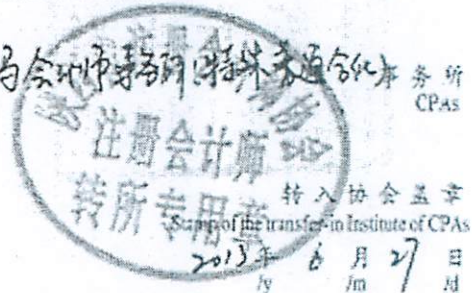 马会计师事务所(特殊普通合伙)事务所
CPAs
注册会计师
转所专用章
转入协会盖章
Stamp of the transfer-in Institute of CPAs
2013年6月27日
/y /m /d